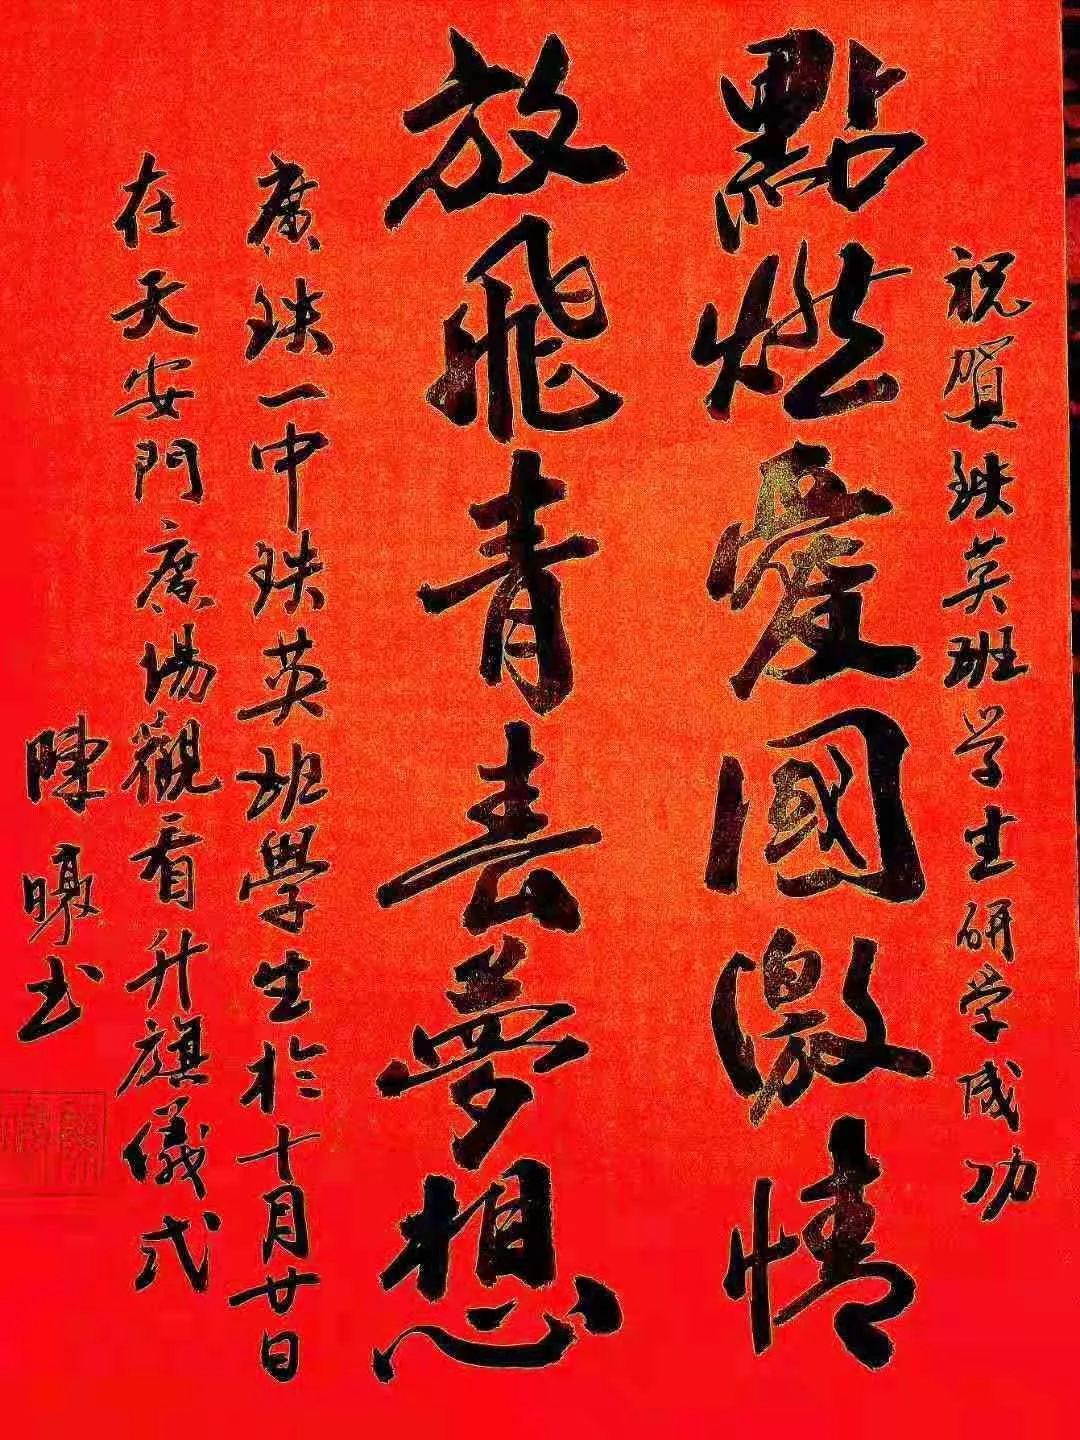 祝賀鉄英班学生研学成功
點燃愛國激情
放飛青春夢想
廣鉄一中鉄英班學生於十月廿日
在天安門廣場觀看升旗儀式
陳書